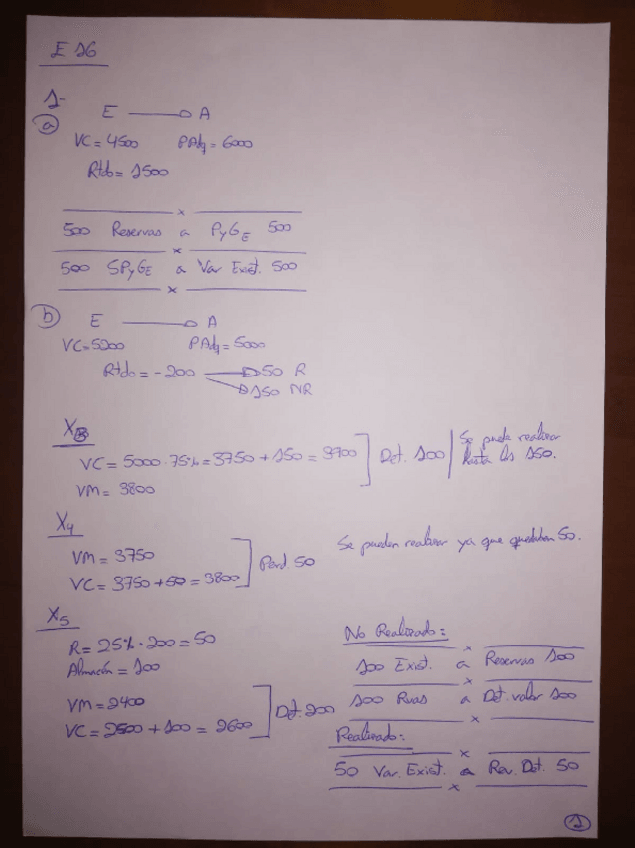 E 16
1-
a) E → A
VC = 4500 PAdq = 6000
Rtdo = 1500
x
500 Reservas a PyG_E 500
x
500 SPyG_E a Var Exist. 500
x
b) E → A
VC = 5200 PAdq = 5000
Rtdo = - 200 → 50 R
→ 150 NR
X3
VC = 5000 · 75% = 3750 + 150 = 3900 ] Det. 100 | Se puede realizar
hasta los 150.
VM = 3800
X4
VM = 3750
VC = 3750 + 50 = 3800 ] Perd. 50
Se pueden realizar ya que quedaban 50.
X5
R = 25% · 200 = 50
Almacén = 100
VM = 2400
VC = 2500 + 100 = 2600 ] Det. 200
No Realizado:
x
100 Exist. a Reservas 100
x
100 Rvas a Det. valor 100
x
Realizado:
x
50 Var. Exist. a Rev. Det. 50
x
1